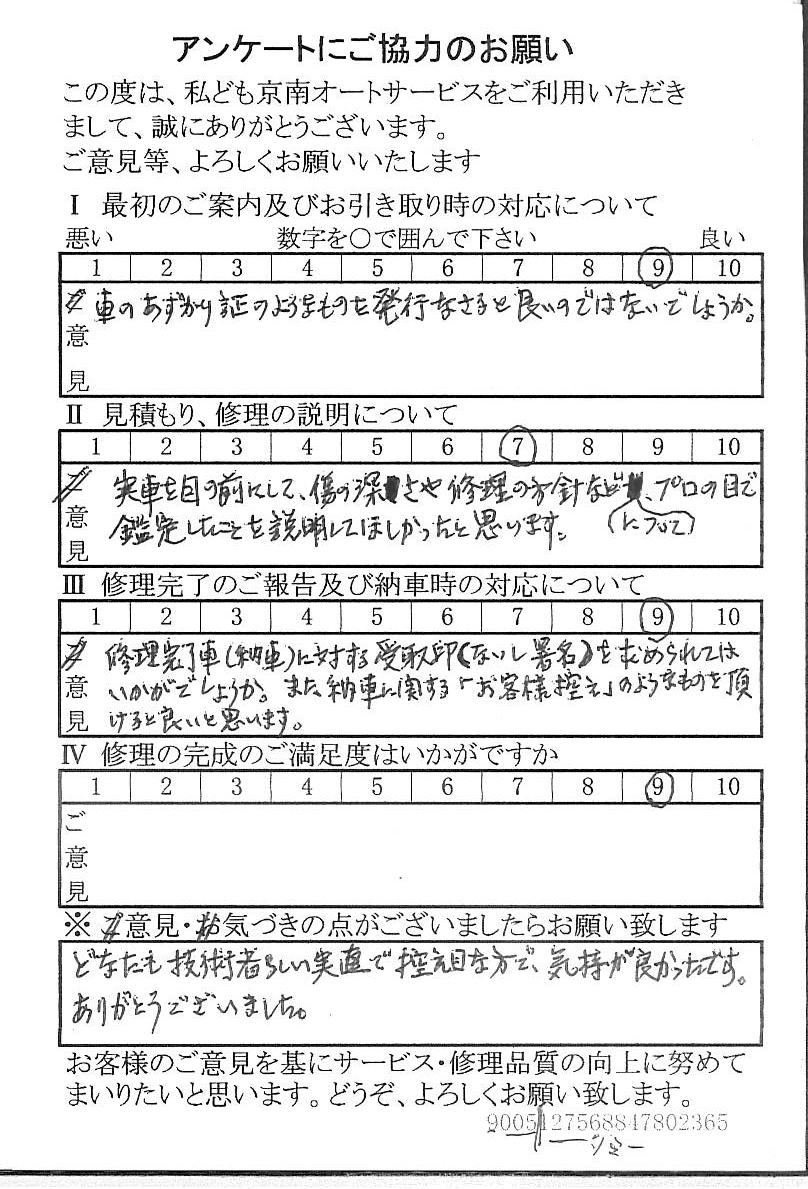 アンケートにご協力のお願い
この度は、私ども京南オートサービスをご利用いただき
まして、誠にありがとうございます。
ご意見等、よろしくお願いいたします
Ⅰ 最初のご案内及びお引き取り時の対応について
悪い 数字を〇で囲んで下さい 良い
1 2 3 4 5 6 7 8 9 10
ご意見
車のあずかり証のようなものを発行なさると良いのではないでしょうか。
Ⅱ 見積もり、修理の説明について
1 2 3 4 5 6 7 8 9 10
ご意見
実車を目の前にして、傷の深さや修理の方針など、プロの目で
鑑定したことを説明してほしかったと思います。(について)
Ⅲ 修理完了のご報告及び納車時の対応について
1 2 3 4 5 6 7 8 9 10
ご意見
修理完了車(納車)に対する受取印(ないし署名)を求められては
いかがでしょうか。また納車に関する「お客様控え」のようなものを頂
けると良いと思います。
Ⅳ 修理の完成のご満足度はいかがですか
1 2 3 4 5 6 7 8 9 10
ご意見
※ご意見・お気づきの点がございましたらお願い致します
どなたも技術者らしい実直で控え目な方で、気持が良かったです。
ありがとうございました。
お客様のご意見を基にサービス・修理品質の向上に努めて
まいりたいと思います。どうぞ、よろしくお願い致します。
9005127568847802365